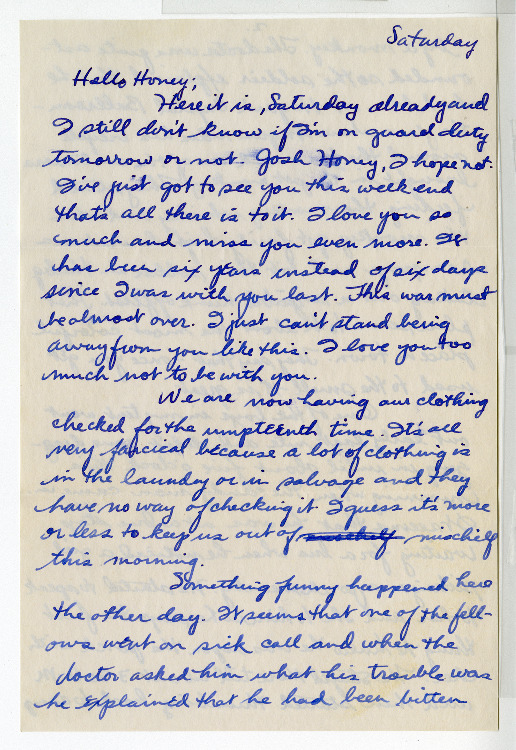 Saturday
Hello Honey;
Here it is, Saturday already and
I still don't know if I'm on guard duty
tomorrow or not. Gosh Honey, I hope not.
I've just got to see you this week end
that's all there is to it. I love you so
much and miss you even more. It
has been six years instead of six days
since I was with you last. This war must
be almost over. I just can't stand being
away from you like this. I love you too
much not to be with you.
We are now having our clothing
checked for the umpteenth time. It's all
very farcical because a lot of clothing is
in the laundry or in salvage and they
have no way of checking it. I guess it's more
or less to keep us out of mischief
this morning.
Something funny happened here
the other day. It seems that one of the fell-
ows went on sick call and when the
doctor asked him what his trouble was
he explained that he had been bitten